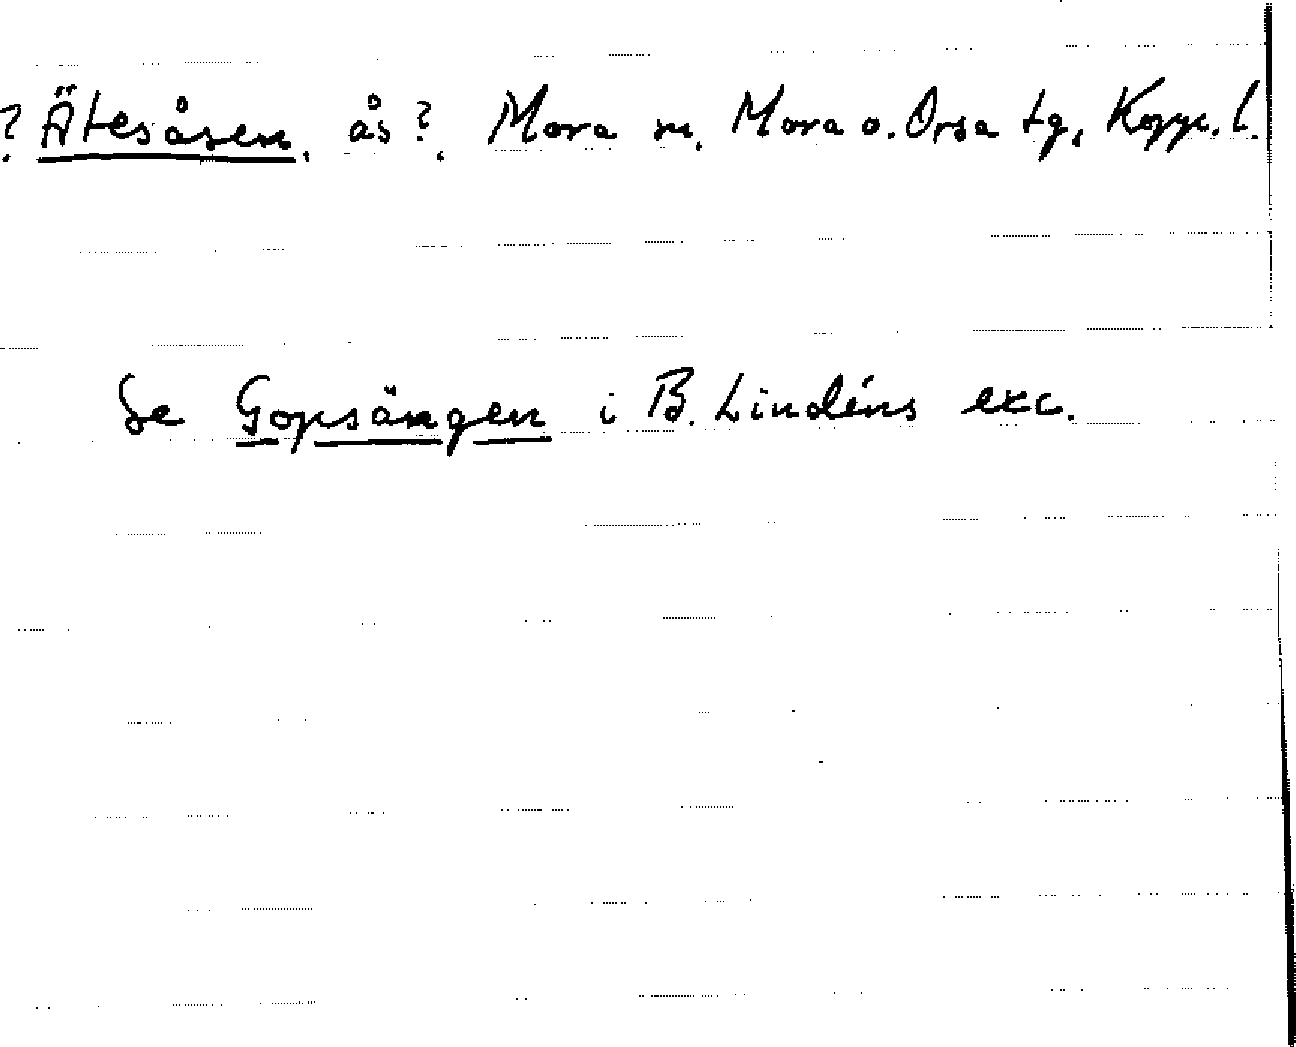 ? Ätesåsen, ås?, Mora sn, Mora o. Orsa tg, Kopp. l.
Se Gopsängen i B. Lindéns exc.